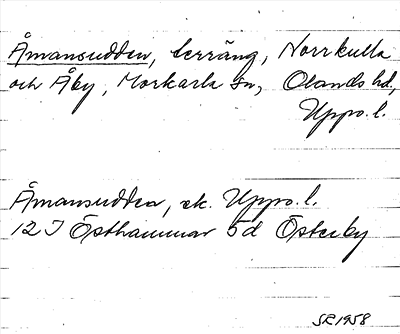 Åmansudden, terräng, Norrkulla
och Åby, Morkarla sn, Olands hd,
Upps. l.
Åmansudden, ek. Upps. l.
12 I Östhammar 5d Österby
SR 1958